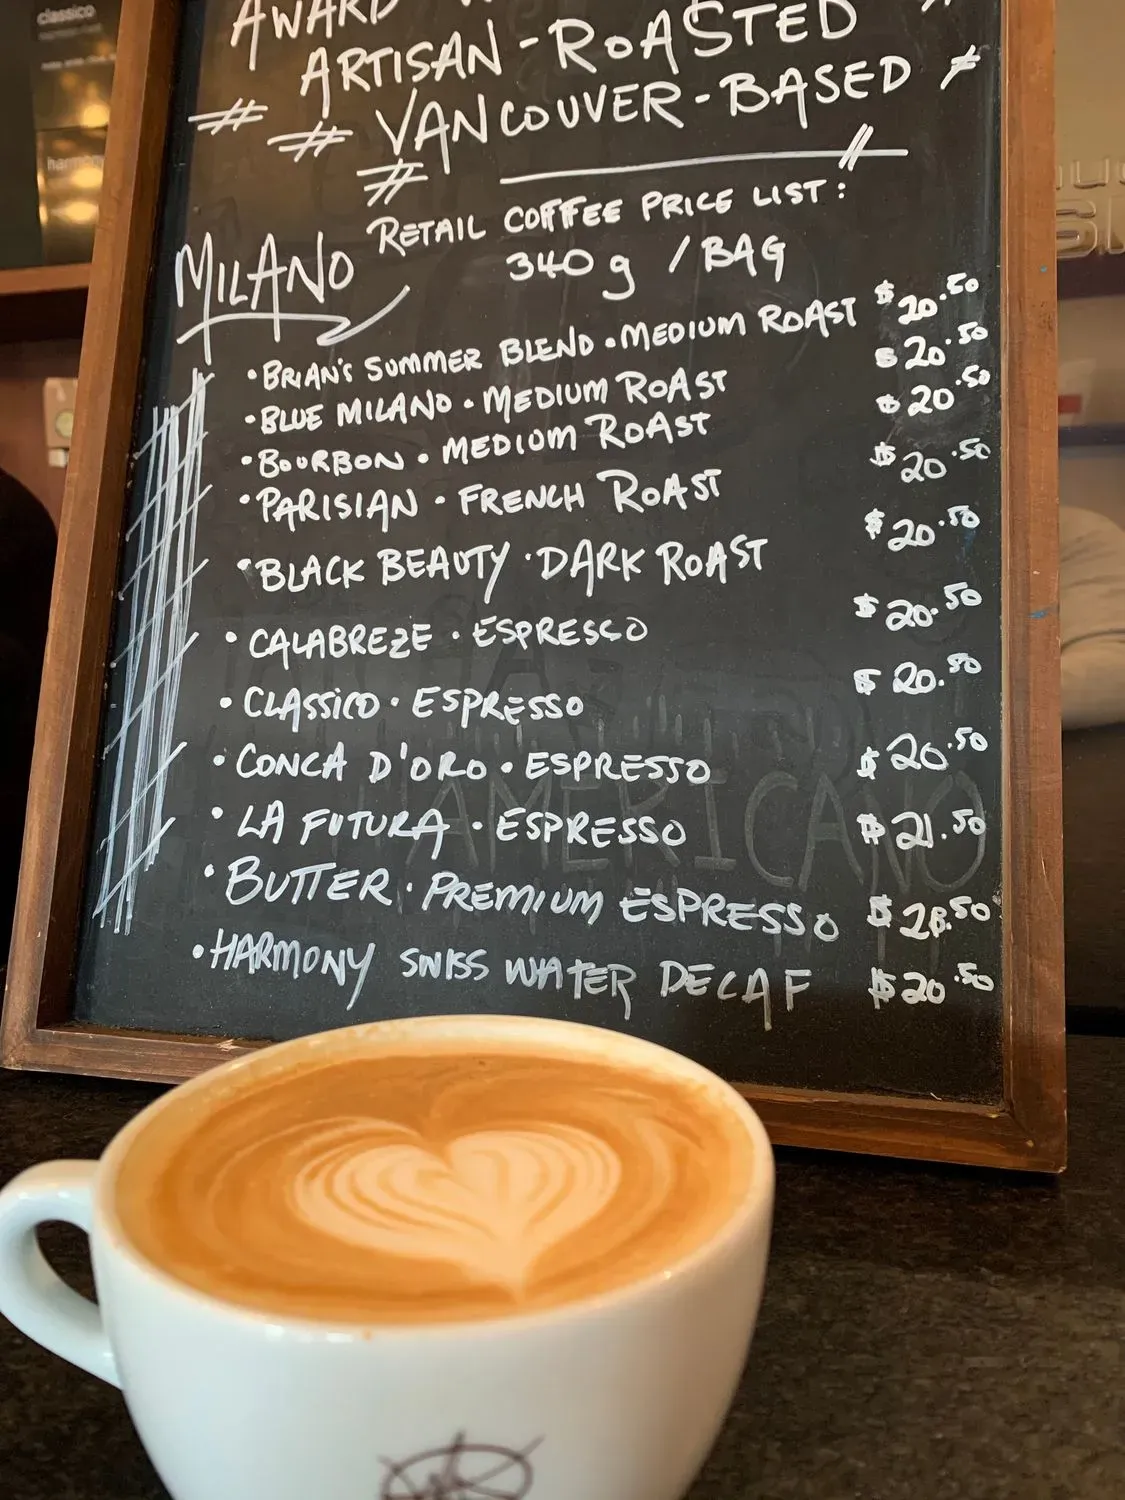 classico
harmony
AWARD
ARTISAN-ROASTED
VANCOUVER-BASED
RETAIL COFFEE PRICE LIST:
MILANO
340g /BAG
• BRIAN'S SUMMER BLEND • MEDIUM ROAST $20.50
• BLUE MILANO • MEDIUM ROAST $20.50
• BOURBON • MEDIUM ROAST $20.50
• PARISIAN • FRENCH ROAST $20.50
• BLACK BEAUTY • DARK ROAST $20.50
• CALABREZE • ESPRESCO $20.50
• CLASSICO • ESPRESSO $20.50
• CONCA D'ORO • ESPRESSO $20.50
• LA FUTURA • ESPRESSO $21.50
• BUTTER • PREMIUM ESPRESSO $28.50
• HARMONY SWISS WATER DECAF $20.50
AMERICANO